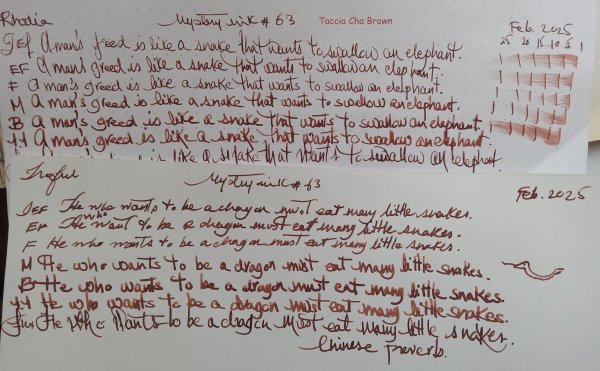 Rhodia Mystery ink # 63 Taccia Cha Brown Feb. 2025
25 20 15 10 5 1
JEF A man's greed is like a snake that wants to swallow an elephant.
EF A man's greed is like a snake that wants to swallow an elephant.
F A man's greed is like a snake that wants to swallow an elephant.
M A man's greed is like a snake that wants to swallow an elephant.
B A man's greed is like a snake that wants to swallow an elephant.
1.1 A man's greed is like a snake that wants to swallow an elephant.
is like a snake that wants to swallow an elephant.
Mystery ink # 63 Feb. 2025
JEF He who wants to be a dragon must eat many little snakes.
EF He who want to be a dragon must eat many little snakes.
F He who wants to be a dragon must eat many little snakes.
M He who wants to be a dragon must eat many little snakes.
B He who wants to be a dragon must eat many little snakes.
1.1 He who wants to be a dragon must eat many little snakes.
He who wants to be a dragon must eat many little snakes.
Chinese proverb.